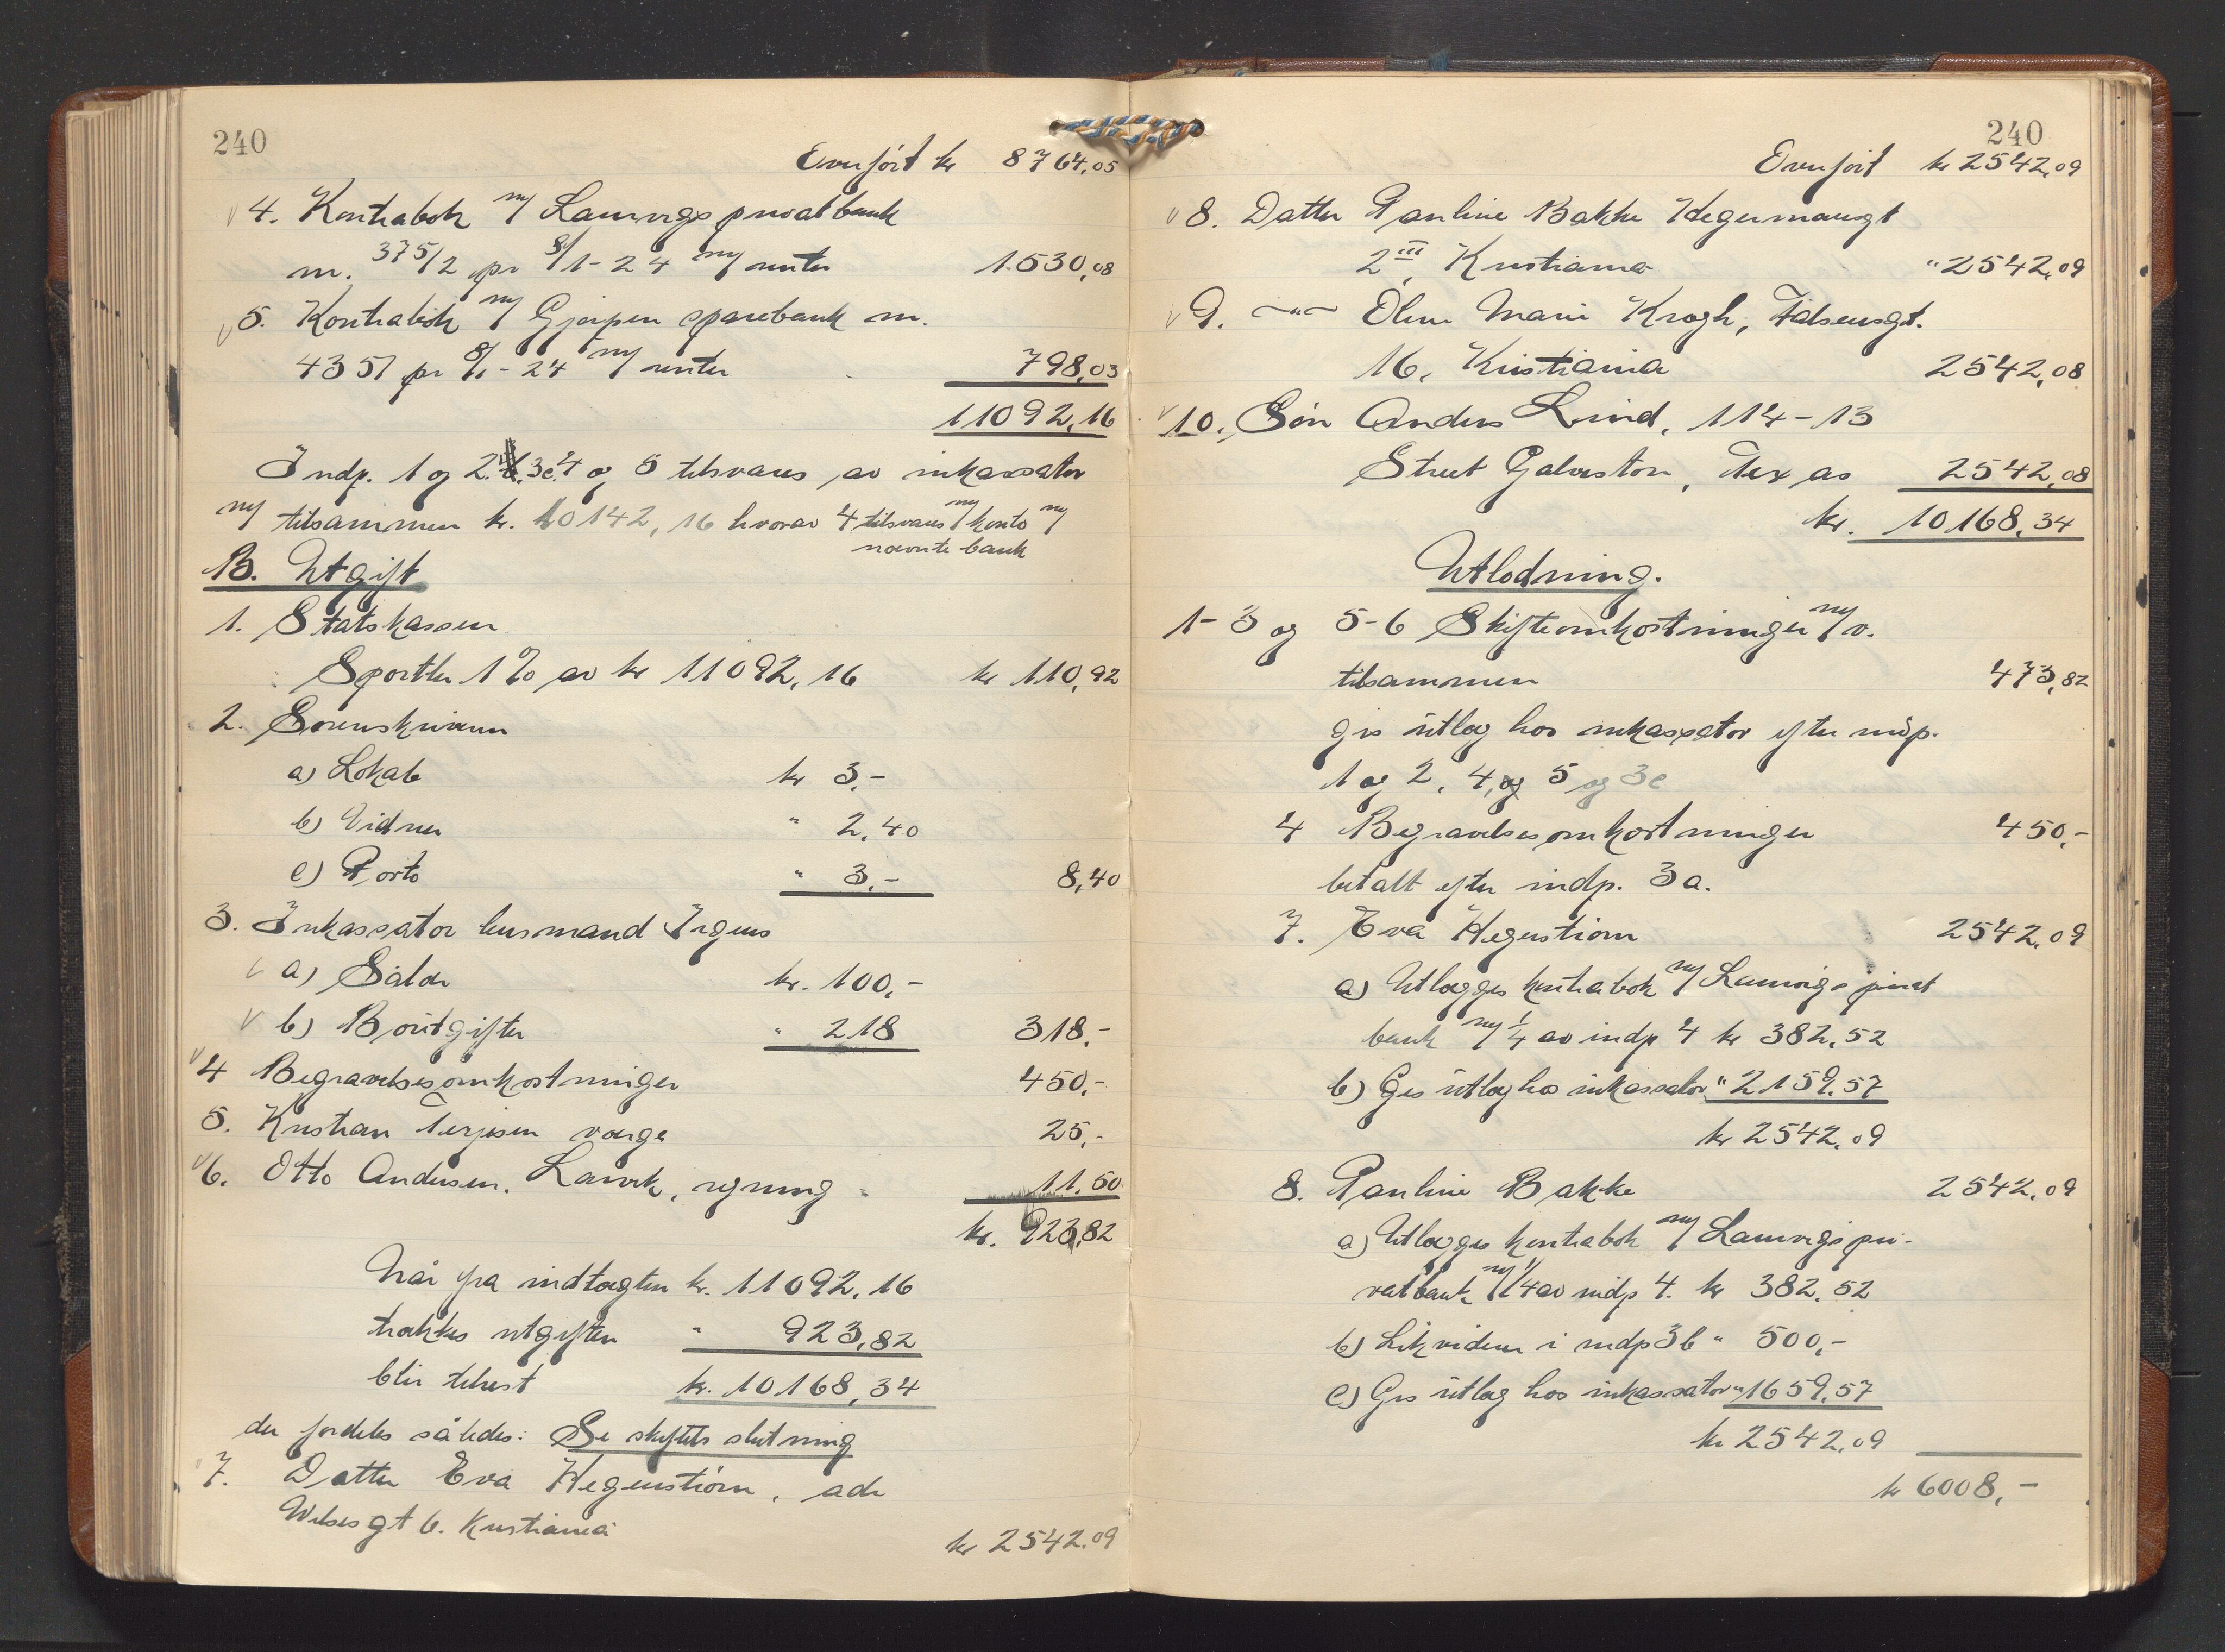 240
Overført kr 8764,05
4. Kontrabok m/ Laurvigs privatbank
nr. 375/2 pr 8/1-24 m/ renter 1.530,08
5. Kontrabok m/ Gjerpen sparebank nr.
4357 pr 8/1-24 m/ renter 798,03
11092,16
Indp. 1 og 2. 3c. 4 og 5 tilsvares av inkassator
m/ tilsammen kr. 10142,16 hvorav 4 tilsvares m/ konto m/
nævnte bank
B. Utgift
1. Statskassen
Sportler 1% av kr 11092,16 kr 110,92
2. Sorenskriveren
a) Lokale kr 3,-
b) Vidner " 2,40
c) Porto " 3,- 8,40
3. Inkassator lensmand Irgens
a) Salær kr. 100,-
b) Boutgifter " 218 318,-
4 Begravelsesomkostninger 450,-
5. Kristian Terjesen værge 25,-
6. Otto Andersen, Larvik, regning 11,50
kr. 923,82
Når fra indtægten kr. 11092,16
trækkes utgiften " 923,82
blir tilrest kr. 10168,34
der fordeles således: Se skiftets slutning
7. Datter Eva Hegerstrøm, adr
Welsesgt 6. Kristiania
kr 2542,09
240
Overført kr 2542,09
8. Datter Pauline Bakke Hegermansgt
2 III, Kristiania " 2542,09
9. —"— Oline Marie Krogh, Falsensgt.
16, Kristiania 2542,08
10. Søn Anders Lind, 114-13
Street Galveston, Texas 2542,08
kr. 10168,34
Utlodning.
1-3 og 5-6 Skifteomkostninger m/v.
tilsammen 473,82
gis utlæg hos inkassator efter indp.
1 og 2, 4, og 5 og 3c
4 Begravelsesomkostninger 450,-
betalt efter indp. 3a.
7. Eva Hegerstrøm 2542,09
a) Utlægges kontrabok m/ Laurvigs privat
bank m/ 1/4 av indp 4 kr 382,52
b) Gis utlæg hos inkassator " 2159,57
kr 2542,09
8. Pauline Bakke 2542,09
a) Utlægges kontrabok m/ Laurvigs pri-
vatbank m/ 1/4 av indp 4. kr 382,52
b) Likviden i indp 3b " 500,-
c) Gis utlæg hos inkassator " 1659,57
kr 2542,09
kr 6008,-